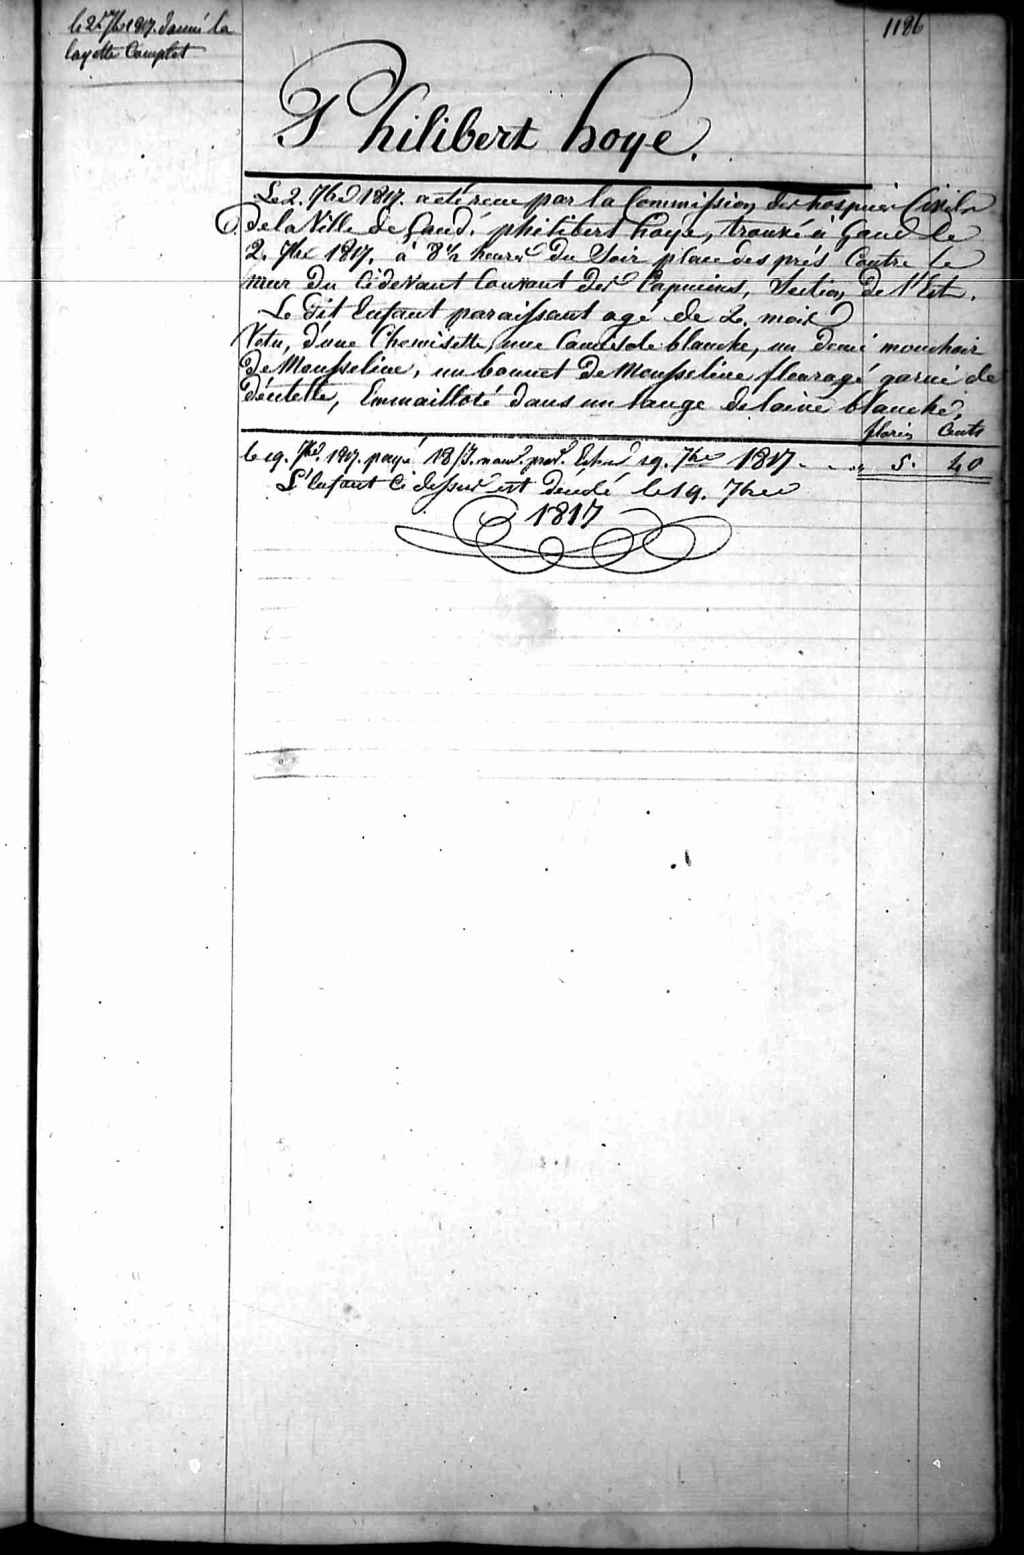 le 2 7bre 1817. donné la
layette Complet
1186
Philibert hoye.
Le 2. 7bre 1817. a eté recue par la Commission des hospices Civils
de la Ville de Gand. philibert hoye, trouvé à Gand le
2. 7bre 1817. à 8½ heures du Soir place des prés Contre le
mur du Cidevant Couvant des Capucins, Section de l'Est.
Le dit Enfant paraissant agé de 2. mois
Vetu, d'une Chemisette, une Camisole blanche, un demi mouchoir
de Mousseline, un bonnet de Mousseline fleuragé garni de
déntelle, Emmailloté dans un lange de laine blanche,
florin Cents
le 19. 7bre 1817. payé 18 19. 7bre 1817 - - - 5. 40
L'Enfant Ci dessus est décédé le 19. 7bre
1817